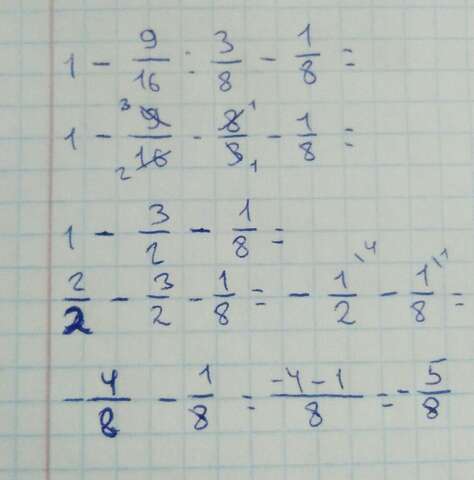 1 - 9/16 : 3/8 - 1/8 =
1 - 9³/16₂ - 8¹/3₁ - 1/8 =
1 - 3/2 - 1/8 =
2/2 - 3/2 - 1/8 = - 1/2 \4 - 1/8 \1 =
- 4/8 - 1/8 = -4-1/8 = - 5/8